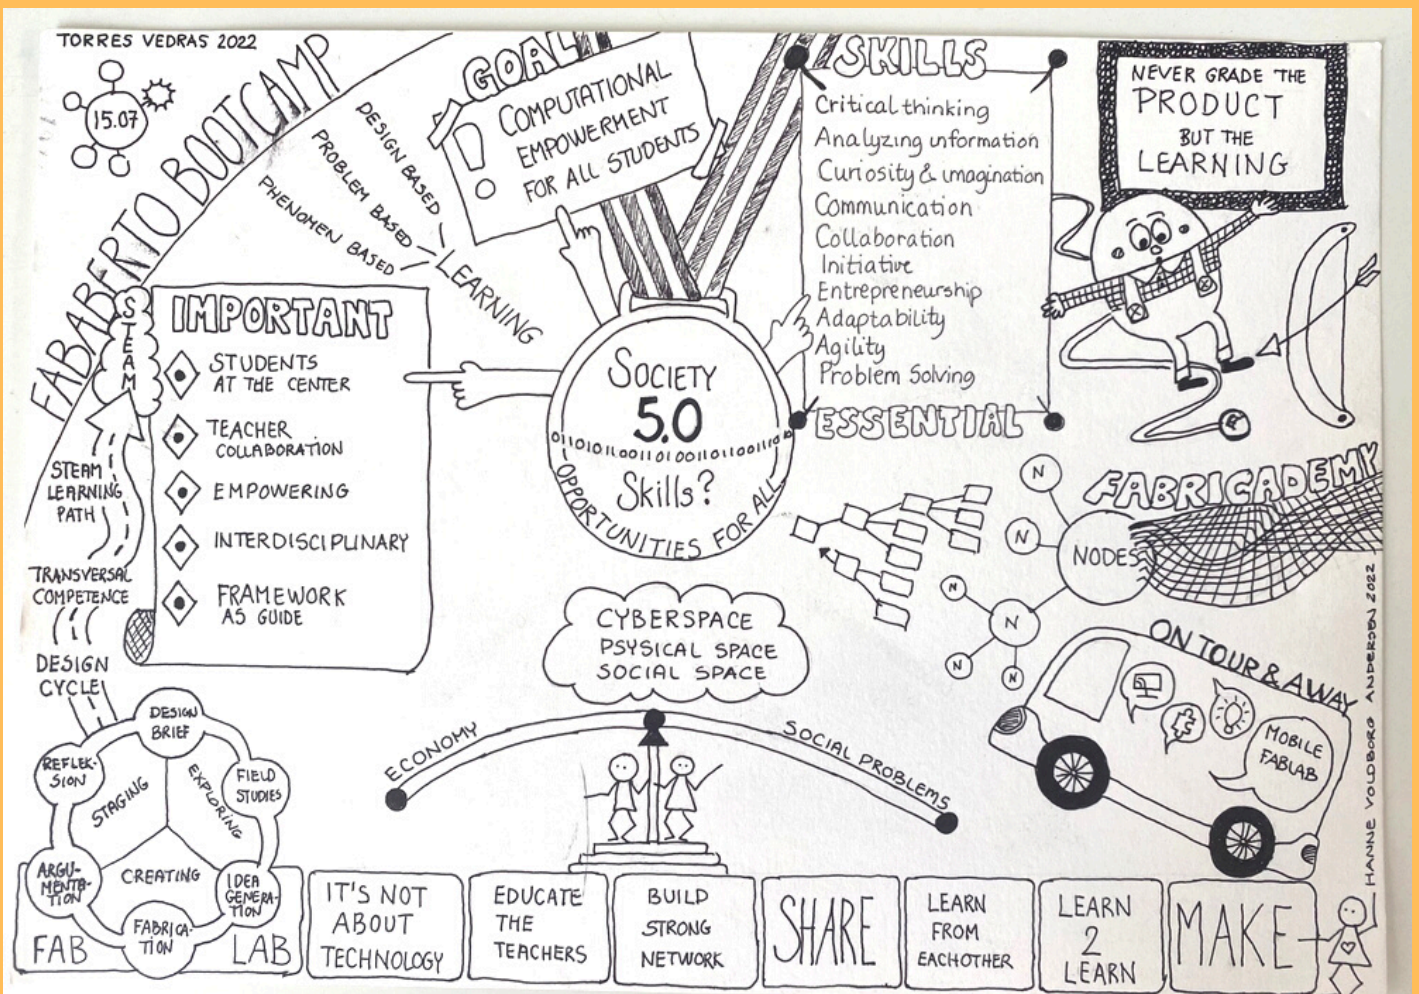 TORRES VEDRAS 2022
15.07
FABABERTO BOOTCAMP
DESIGN BASED
PROBLEM BASED
PHENOMEN BASED
LEARNING
GOAL!!
!
COMPUTATIONAL
EMPOWERMENT
FOR ALL STUDENTS
SKILLS
Critical thinking
Analyzing information
Curiosity & imagination
Communication
Collaboration
Initiative
Entrepreneurship
Adaptability
Agility
Problem Solving
ESSENTIAL
NEVER GRADE THE
PRODUCT
BUT THE
LEARNING
STEAM
IMPORTANT
STUDENTS
AT THE CENTER
TEACHER
COLLABORATION
EMPOWERING
INTERDISCIPLINARY
FRAMEWORK
AS GUIDE
STEAM
LEARNING
PATH
TRANSVERSAL
COMPETENCE
DESIGN
CYCLE
SOCIETY
5.0
Skills?
OPPORTUNITIES FOR ALL
FABRICADEMY
N
N
NODES
N
N
N
N
CYBERSPACE
PSYSICAL SPACE
SOCIAL SPACE
ECONOMY
SOCIAL PROBLEMS
ON TOUR & AWAY
MOBILE
FABLAB
HANNE VOLDBORG ANDERSEN 2022
DESIGN
BRIEF
REFLEK-
SION
FIELD
STUDIES
STAGING
EXPLORING
CREATING
ARGU-
MENTA-
TION
IDEA
GENERA-
TION
FABRICA-
TION
FAB LAB
IT'S NOT
ABOUT
TECHNOLOGY
EDUCATE
THE
TEACHERS
BUILD
STRONG
NETWORK
SHARE
LEARN
FROM
EACHOTHER
LEARN
2
LEARN
MAKE